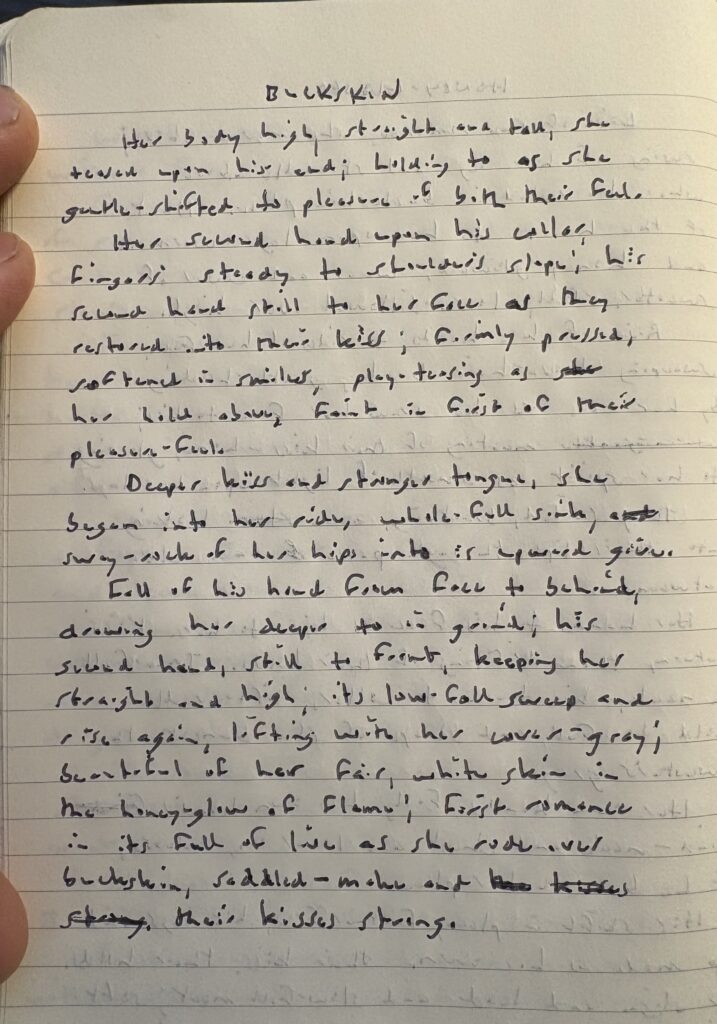 BUCKSKIN
Her body high, straight and tall, she
teased upon his end; holding to as she
gentle-shifted to pleasure of both their feel.
Her second hand upon his collar,
fingers; steady to shoulders slope; his
second hand still to her face as they
restored into their kiss; firmly pressed,
softened in smiles, play-teasing as she
her hold above, faint in first of their
pleasure-feel.
Deeper kiss and stronger tongue, she
began into her ride, whole-full sink, and
sway-rock of her hips into is upward give.
Fall of his hand from face to behind,
drawing her deeper to in grind; his
second hand, still to front, keeping her
straight and high; its low-fall sweep and
rise again, lifting with her cover-gray;
beautiful of her fair, white skin in
the honey-glow of flame; first romance
in its full of live as she rode over
buckskin, saddled-make and the kisses
strong. their kisses strong.